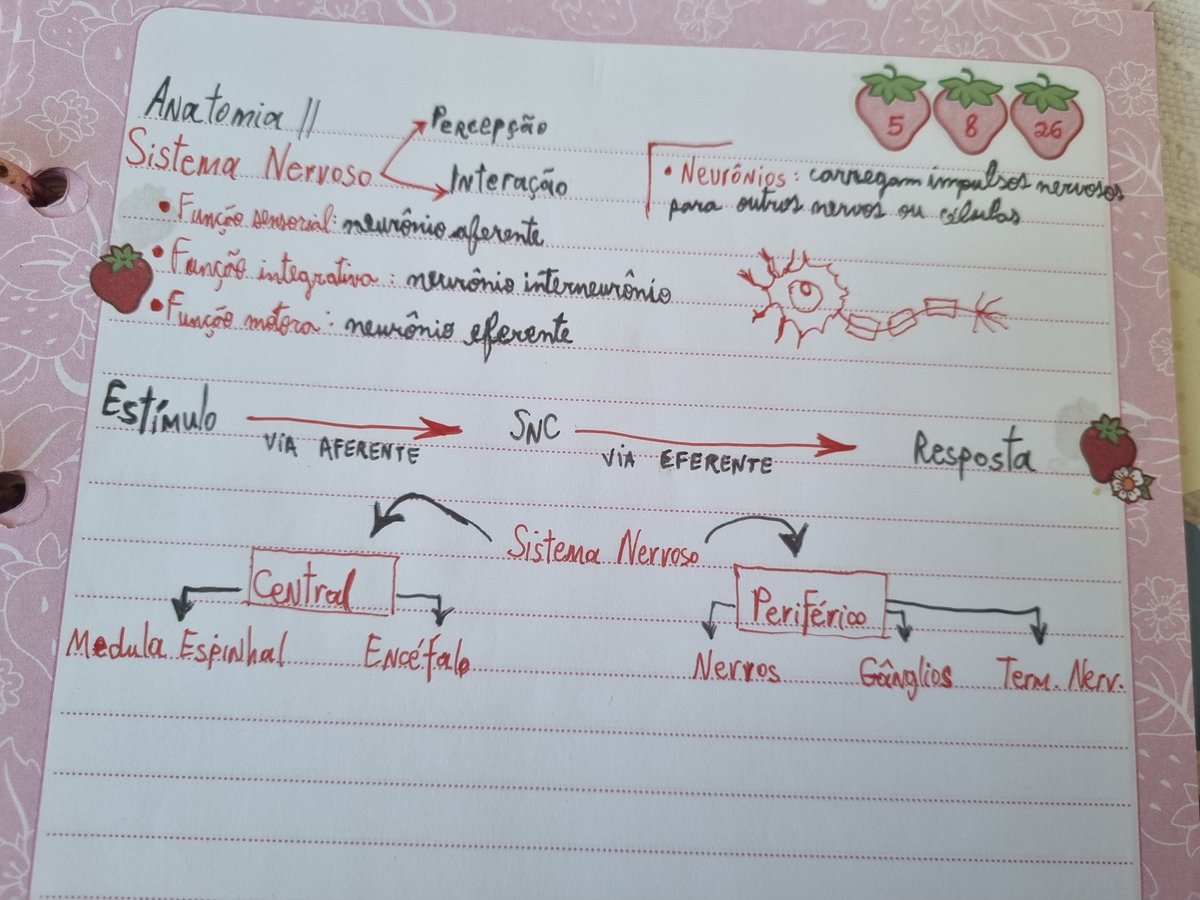 5 8 26
Anatomia //
Percepção
Sistema Nervoso
Interação
• Neurônios: carregam impulsos nervosos
para outros nervos ou células
• Função sensorial: neurônio aferente
• Função integrativa: neurônio interneurônio
• Função motora: neurônio eferente
Estímulo
VIA AFERENTE
SNC
VIA EFERENTE
Resposta
Sistema Nervoso
Central
Periférico
Medula Espinhal
Encéfalo
Nervos
Gânglios
Term. Nerv.